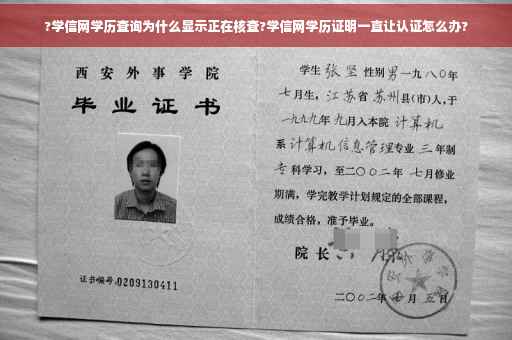 ?学信网学历查询为什么显示正在核查?学信网学历证明一直让认证怎么办?
西安外事学院
毕业证书
证书编号:0209130411
学生 张坚 性别男 一九八〇年
七月生，江苏省苏州县(市)人，于
一九九九年九月入本院 计算机
系 计算机信息管理专业 三 年制
专科学习，至二〇〇二年 七月修业
期满，学完教学计划规定的全部课程，
成绩合格，准予毕业。
院长
二〇〇二年 月 五日